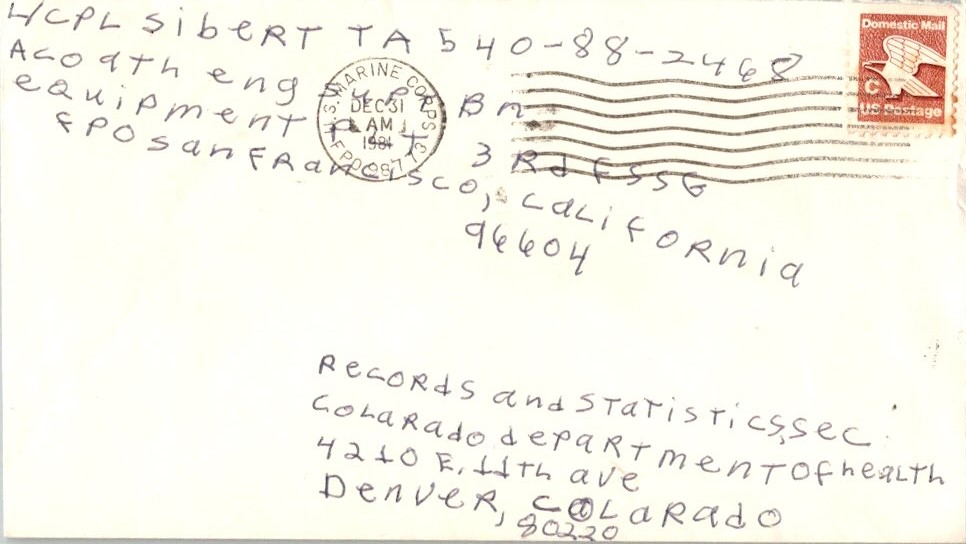 L/CPL SibeRT TA 540-88-2468
Aco 9th eng sup Bn
equipment PLT 3Rd FSSG
FPO san FRancisco, caliFoRnia
96604
U.S. MARINE CORPS
DEC 31
AM
1981
FPO
Domestic Mail
C
US Postage
RecoRds and STaTisTics,sec
coLaRado depaRTmenTofheaLTh
4210 E. 11Th ave
DenveR, coLaRado
80220